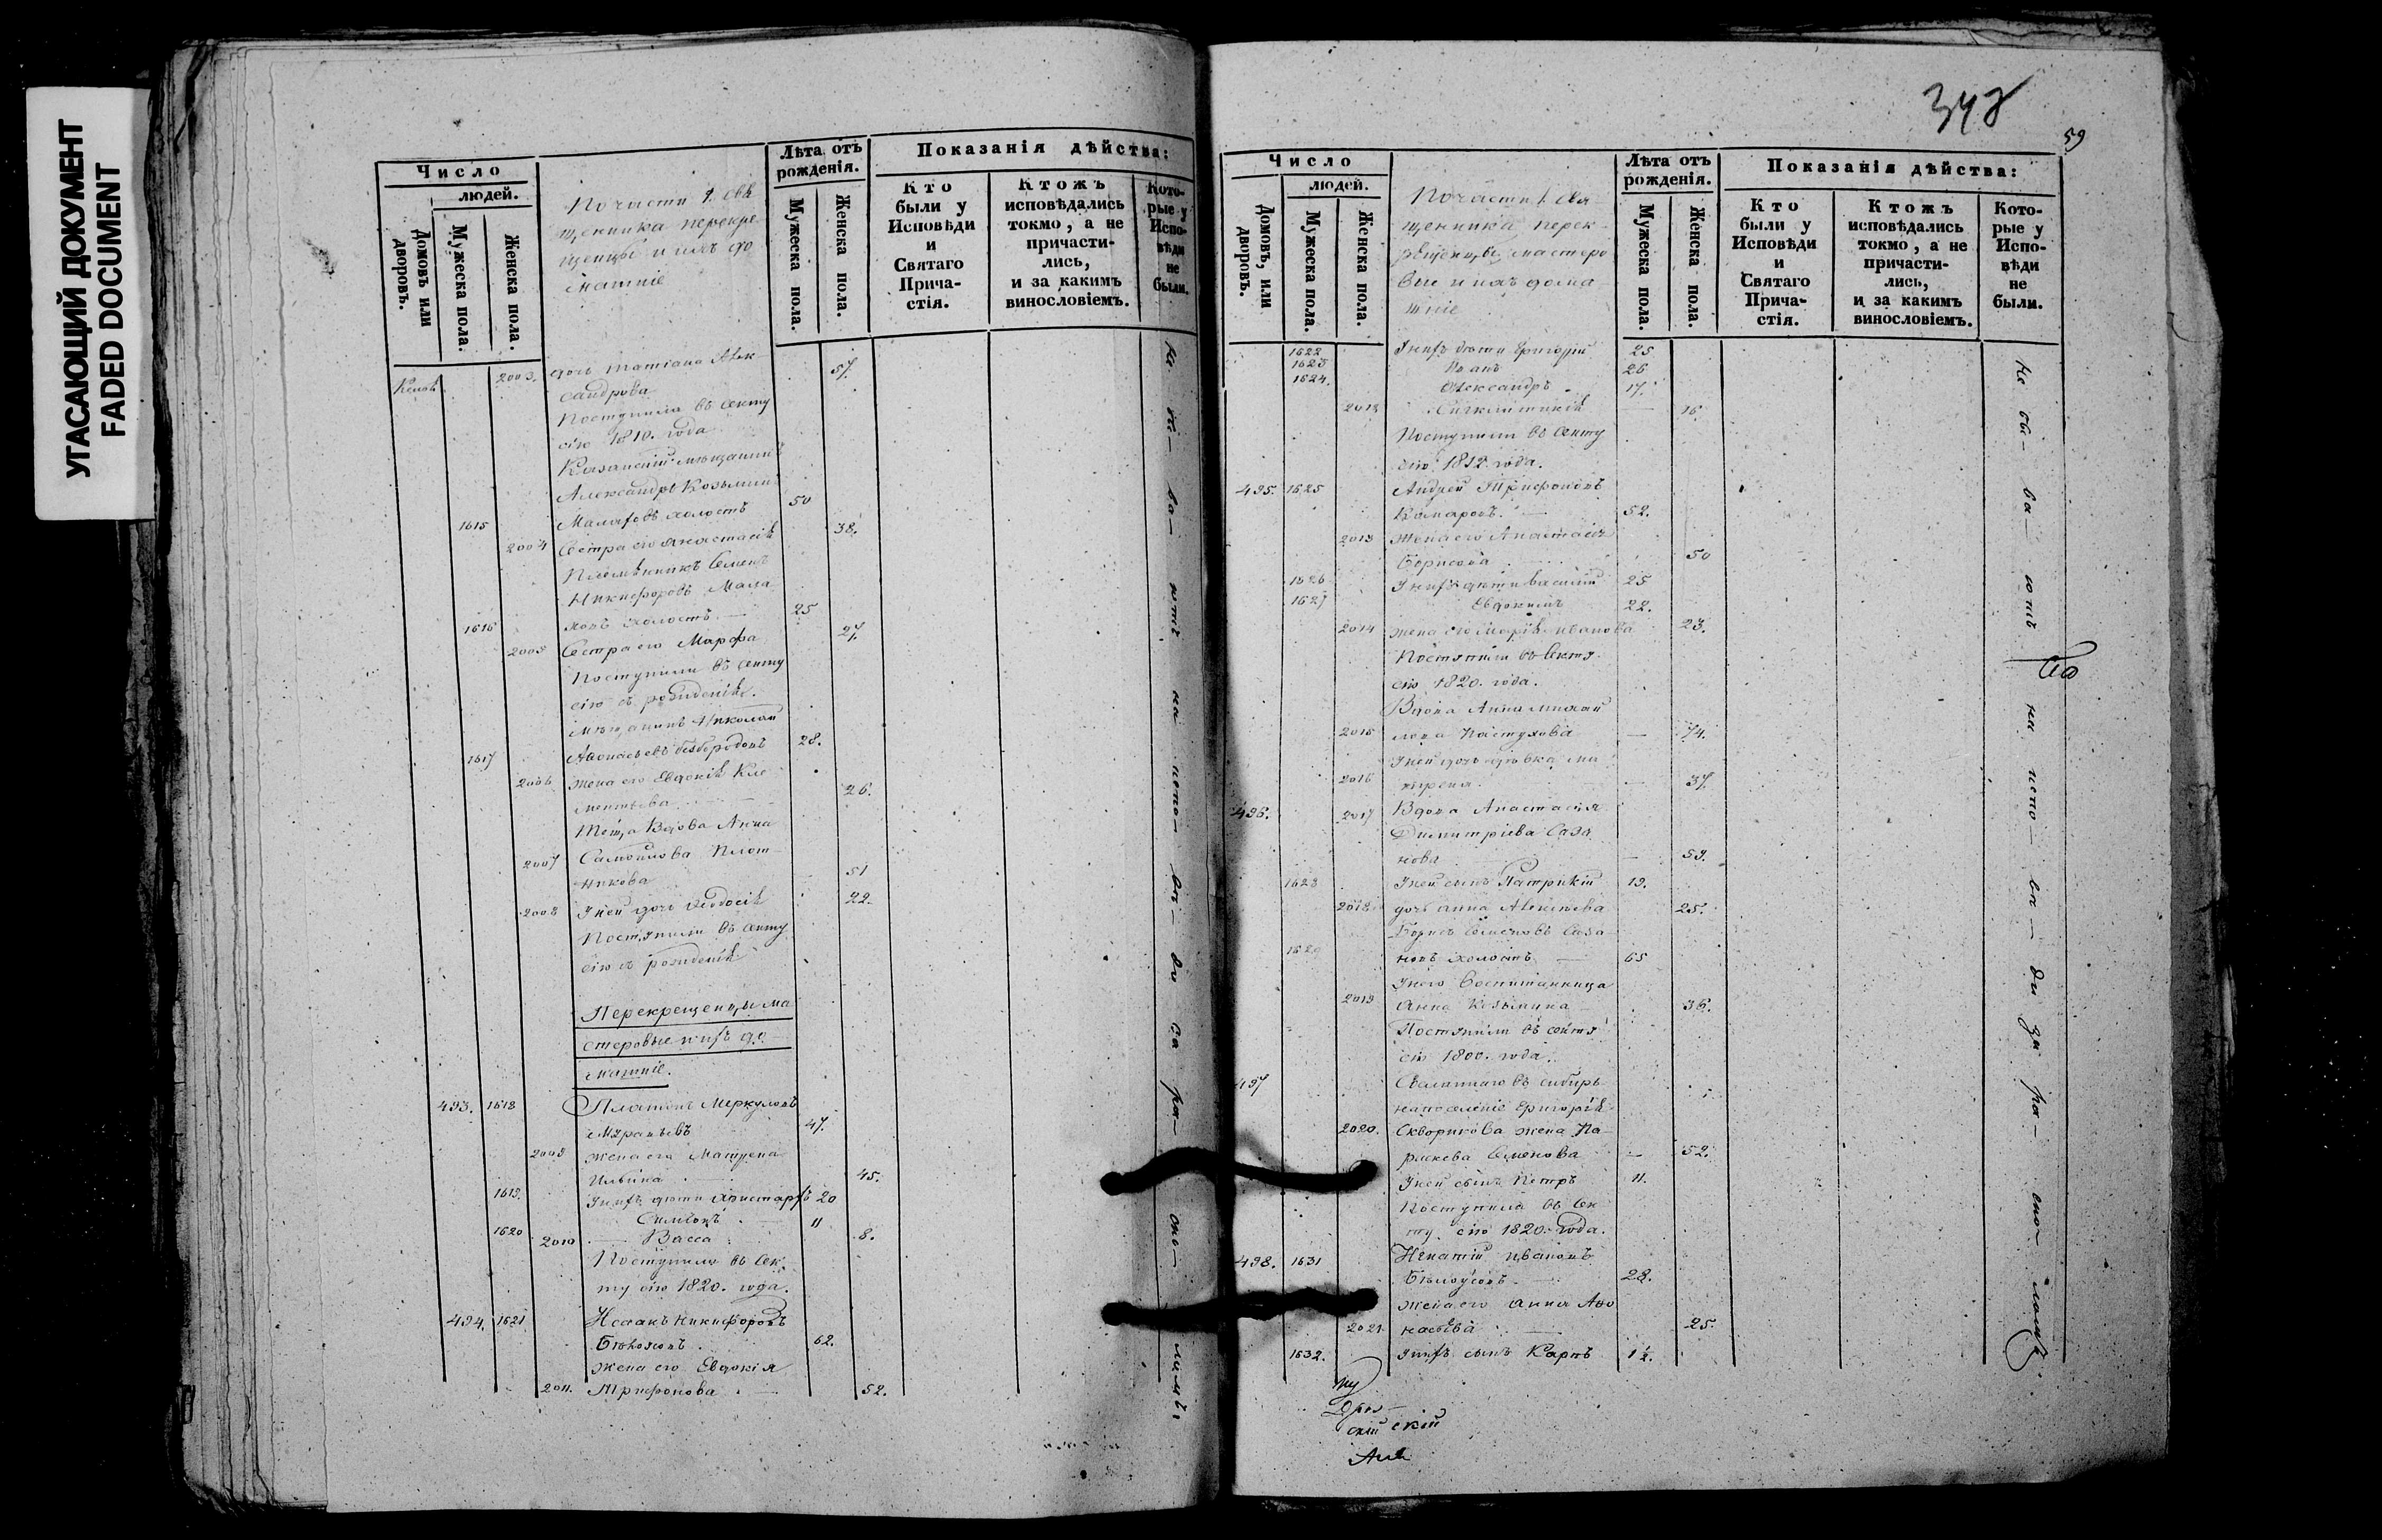 УГАСАЮЩИЙ ДОКУМЕНТ
FADED DOCUMENT
Число
людей.
Домовъ или дворовъ.
Мужеска пола.
Женска пола.
По части 1. свя
щенника перекре
щенцы и ихъ до
машніе
Лѣта отъ рожденія.
Мужеска пола.
Женска пола.
Показанія дѣйства:
Кто были у Исповѣди и Святаго Причастія.
Ктожъ исповѣдались токмо, а не причастились, и за какимъ винословіемъ.
Которые у Исповѣди не были.
2003. дочь Татіана Алек
сандрова 57.
Поступила въ секту
сію 1810. года
Казанскій мещанинъ
Александръ Козьмин
1615 Малаховъ холостъ 50
2004 Сестра его Анастасія 38.
Племянникъ Семенъ
Никифоровъ Мала
1616 ховъ холостъ 25
2005 Сестра его Марфа 27.
Поступили въ секту
сію съ рожденія.
мещанинъ Николай
1617 Афонасьевъ Безбородовъ 28.
2006 жена его Евдокія Кле
ментьева 26.
Теща Вдова Анна
2007 Самойлова Плот
никова 51
2008 У ней дочь Феодосія 22.
Поступили въ секту
сію съ рожденія
Перекрещенцы ма
стеровые и ихъ до
машніе.
493. 1618 Платонъ Меркуловъ
Муравьевъ 47.
2009 жена его Матрена
Ильина 45.
1619. У нихъ дети Аристархъ 20
1620 Симеонъ 11
2010 Васса 8.
Поступили въ сек
ту сію 1820. года.
494. 1621 Исаакъ Никифоровъ
62.
жена его Евдокія
2011. Трифонова 52.
348
59
Число
людей.
Домовъ, или дворовъ.
Мужеска пола.
Женска пола.
По части 1. свя
щенника перек
рещенцы мастеро
вые и ихъ дома
шніе
Лѣта отъ рожденія.
Мужеска пола.
Женска пола.
Показанія дѣйства:
Кто были у Исповѣди и Святаго Причастія.
Ктожъ исповѣдались токмо, а не причастились, и за какимъ винословіемъ.
Которые у Исповѣди не были.
1622 У нихъ дети Григорій 25
1623 Иванъ 26
1624. Александръ 17.
2012 16.
Поступили въ секту
сію 1812 года.
495. 1625 Андрей Трифоновъ
Комаровъ. 52.
2013 Жена его Анастасія
Борисова 50
1626 У нихъ дети Василій 25
1627 Евдокимъ 22.
2014 жена его Марія Иванова 23.
Поступили въ секту
сію 1820. года.
Вдова Анна Михай
2015 лова Пастухова 74.
У ней дочь девка Ма
2016 трена 37.
496. 2017 Вдова Анастасія
Димитріева Саза
нова 59.
1628 У ней сынъ Патрикій 19.
2018 дочь Анна Алексеева 25.
Борисъ Семеновъ Саза
1629 новъ холостъ 65
У него Воспитанница
2019 Анна Козьмина 36.
Поступили въ секту
сію 1800. года.
497 Сосланнаго въ сибирь
на поселеніе Григорія
2020. Скворцова жена Па
раскева Семенова 52.
У ней сынъ Петръ 11.
Поступила въ сек
ту сію 1820. года.
498. 1631 Игнатій Ивановъ
Белоусовъ 28.
жена его Анна Афо
2021 насьева 25.
1632. У нихъ сынъ Карпъ 1½.